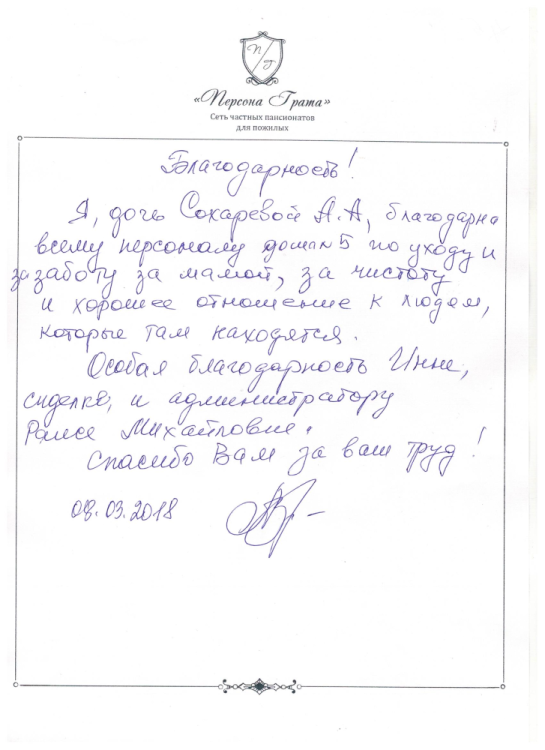 П Г
«Персона Грата»
Сеть частных пансионатов
для пожилых
Благодарность!
Я, дочь Сохаревой А.А, благодарна
всему персоналу дома №5 по уходу и
за заботу за мамой, за чистоту
и хорошее отношение к людям,
которые там находятся.
Особая благодарность Инне,
сиделке, и администратору
Раисе Михайловне.
Спасибо Вам за ваш труд!
08.03.2018